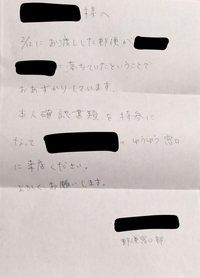 様へ
2/12にお渡しした郵便が
が落ちていたということで
おあずかりしています。
本人確認書類を持参に
なって ゆうゆう窓口
に来店ください。
よろしくお願いします。
郵便窓口部